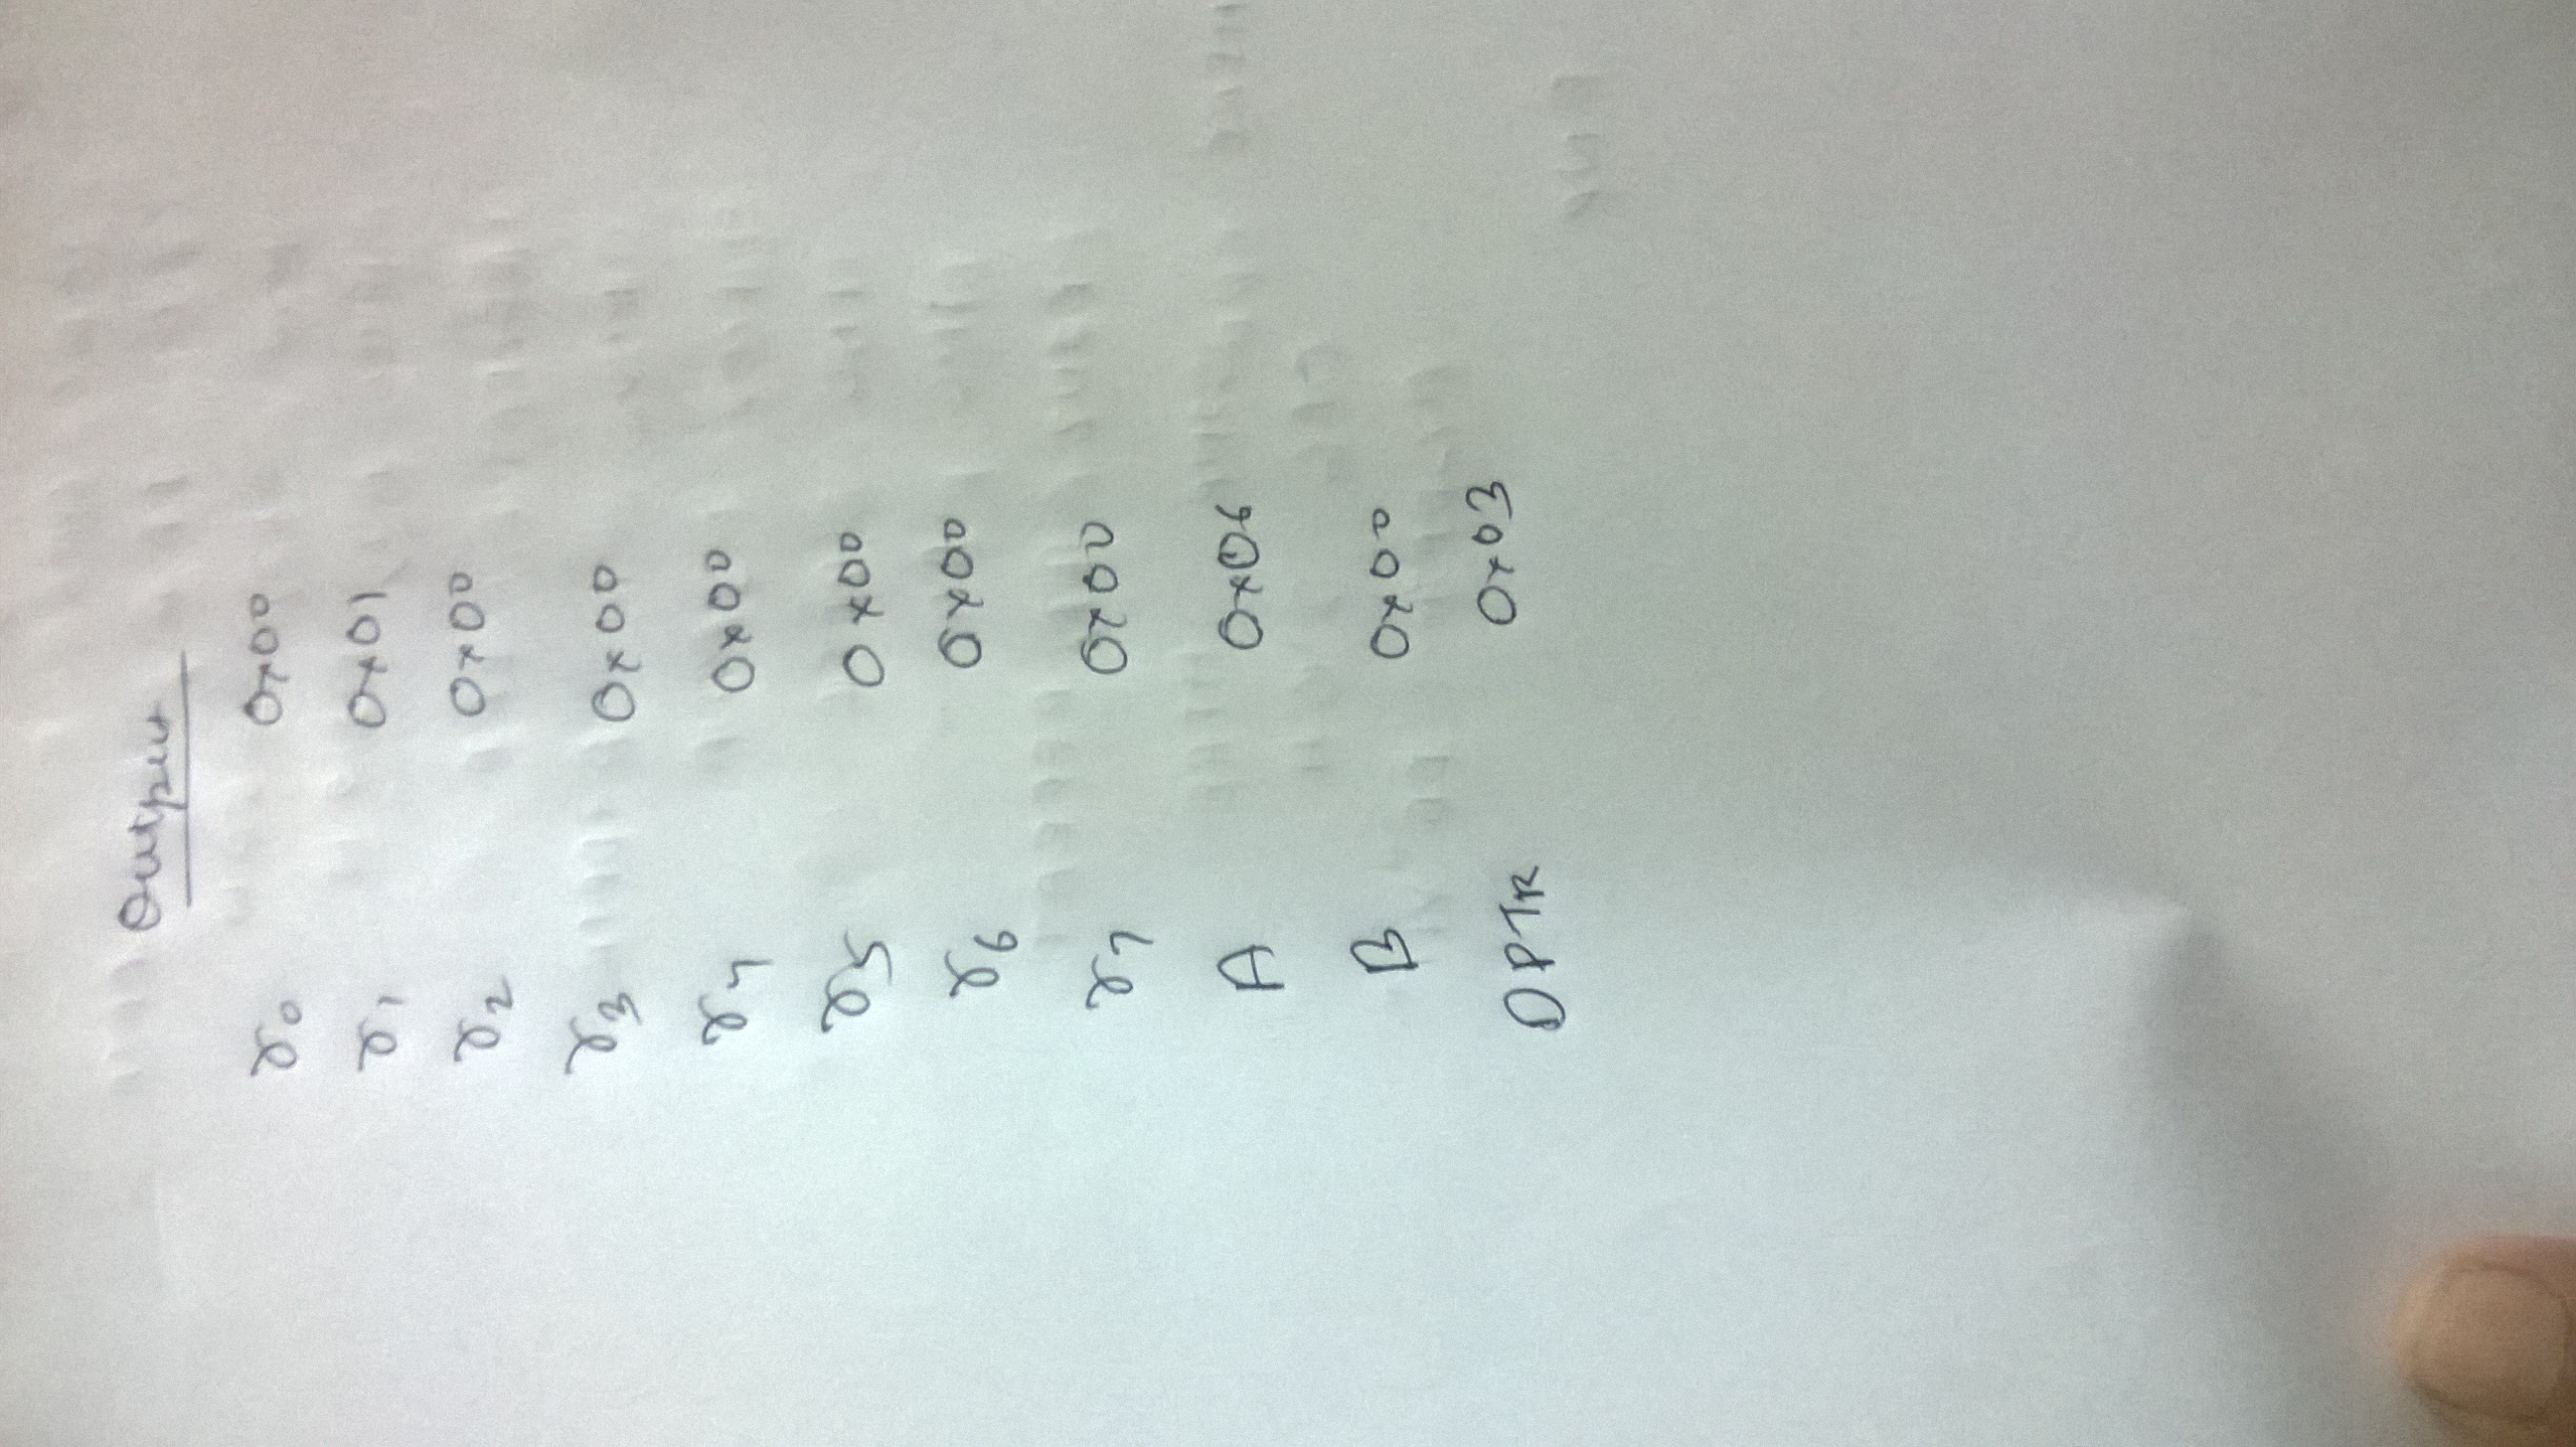 Output
r0 0x00
r1 0x01
r2 0x00
r3 0x00
r4 0x00
r5 0x00
r6 0x00
r7 0x00
A 0x06
B 0x00
DPTR 0x03